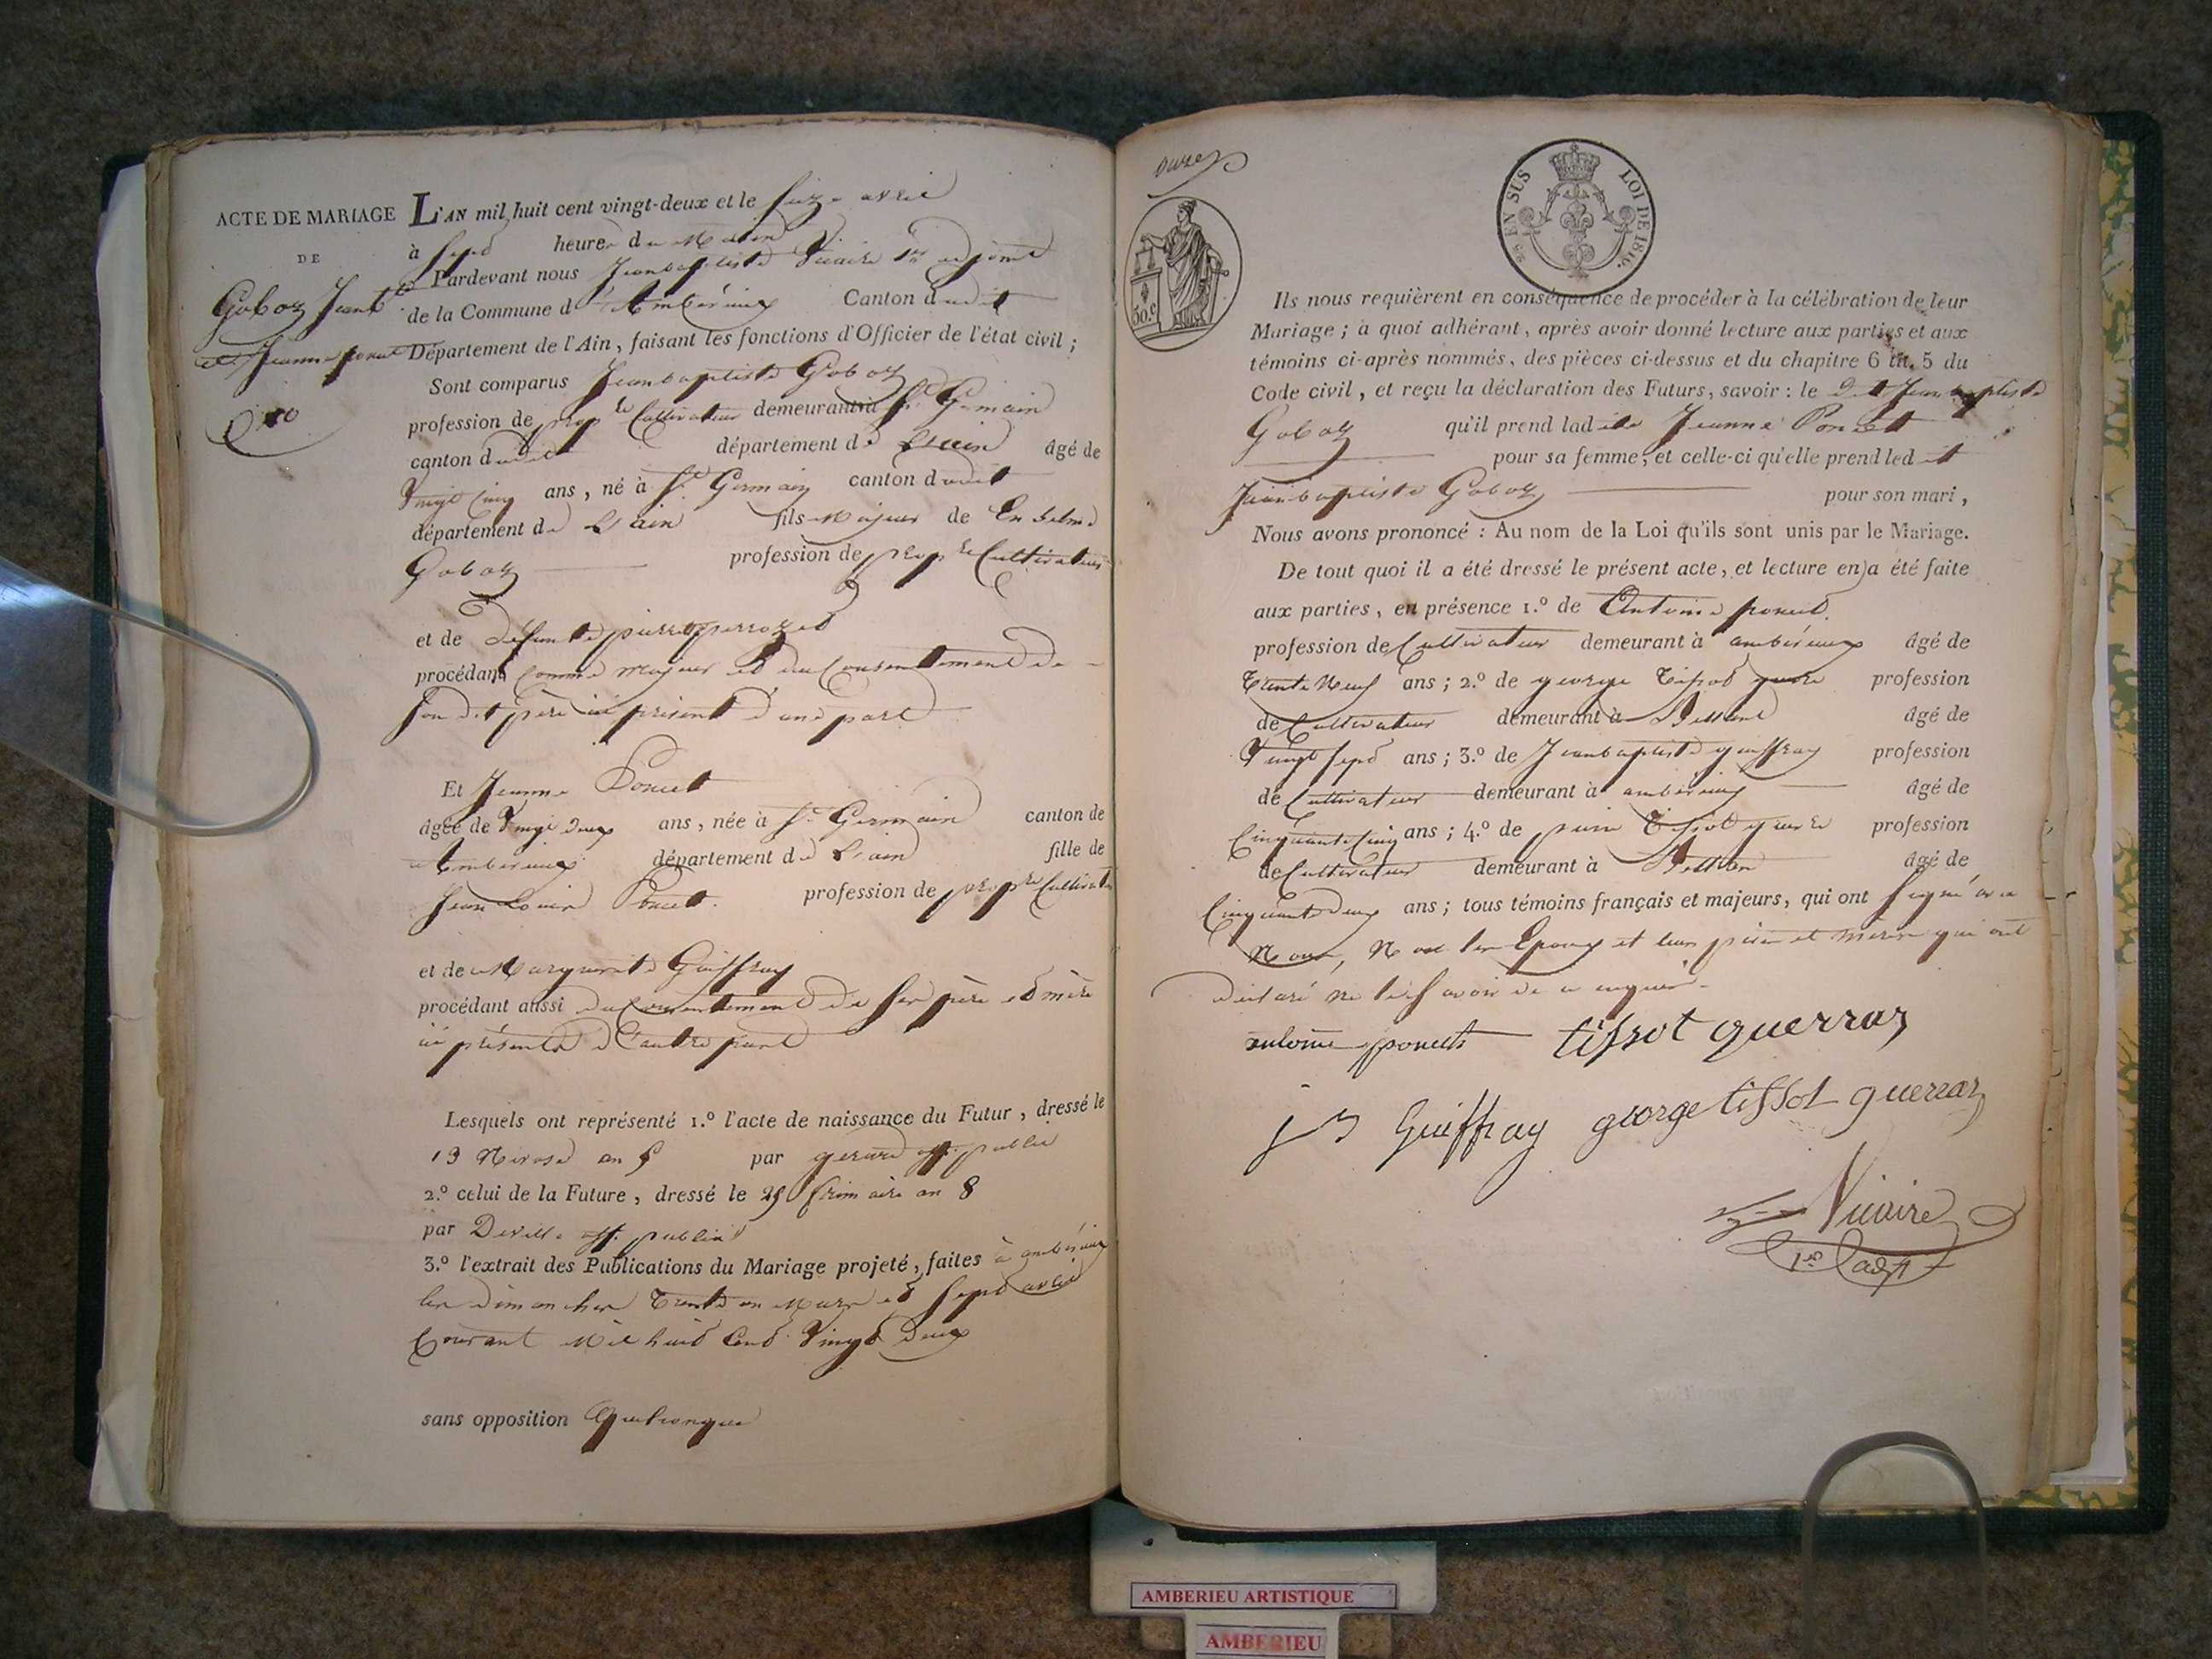 ACTE DE MARIAGE
DE
Goboz Jean Bte
et Jeanne poncet
L'AN mil huit cent vingt-deux et le seize avril
à sept heures du Matin
Pardevant nous Jeanbaptiste Vicaire 1er adjoint
de la Commune d'Ambérieux Canton dudit
Département de l'Ain, faisant les fonctions d'Officier de l'état civil ;
Sont comparus Jeanbaptiste Goboz
profession de propre Cultivateur demeurant à St Germain
canton dudit département de L'ain âgé de
Vingt Cinq ans, né à St Germain canton dudit
département de L'ain fils Majeur de
Goboz profession de propre Cultivateur
et de Défunte pierrette perrozet
procédant Comme majeur et du Consentement de
son dit père ici présent d'une part
Et Jeanne Poncet
âgée de Vingt deux ans, née à St Germain canton de
Ambérieux département de L'ain fille de
Jean Louis Poncet profession de propre Cultivateur
et de Marguerite Guiffray
procédant aussi du Consentement de ses père et mère
ici présents d'autre part
Lesquels ont représenté 1.º l'acte de naissance du Futur, dressé le
13 Nivose an 5 par gerard off. public
2.º celui de la Future, dressé le 25 frimaire an 8
par Deville off. public
3.º l'extrait des Publications du Mariage projeté, faites à ambérieux
les dimanches Trente un Mars et Sept avril
Courant Mil huit Cent Vingt deux
sans opposition Quelconque
30.c
25.c EN SUS LOI DE 1816.
Ils nous requièrent en conséquence de procéder à la célébration de leur
Mariage ; à quoi adhérant, après avoir donné lecture aux parties et aux
témoins ci-après nommés, des pièces ci-dessus et du chapitre 6 tit. 5 du
Code civil, et reçu la déclaration des Futurs, savoir : le Dit Jeanbaptiste
Goboz qu'il prend ladite Jeanne Poncet
pour sa femme, et celle-ci qu'elle prend ledit
Jeanbaptiste Goboz pour son mari,
Nous avons prononcé : Au nom de la Loi qu'ils sont unis par le Mariage.
De tout quoi il a été dressé le présent acte, et lecture en a été faite
aux parties, en présence 1.º de Antoine poncet
profession de Cultivateur demeurant à ambérieux âgé de
Trente Neuf ans ; 2.º de george Tissot guerre profession
de Cultivateur demeurant à Bettant âgé de
Vingt sept ans ; 3.º de Jeanbaptiste guiffray profession
de Cultivateur demeurant à ambérieux âgé de
Cinquante Cinq ans ; 4.º de pierre Tissot guerre profession
de Cultivateur demeurant à Bettant âgé de
Cinquante deux ans ; tous témoins français et majeurs, qui ont signé avec
Nous, Non les Epoux et leurs pères et mères qui ont
déclaré ne le savoir de ce enquis.
antoine poncet tissot guerraz
j B Guiffray george tissot guerraz
Vicaire
1er adjt
AMBERIEU ARTISTIQUE
AMBERIEU